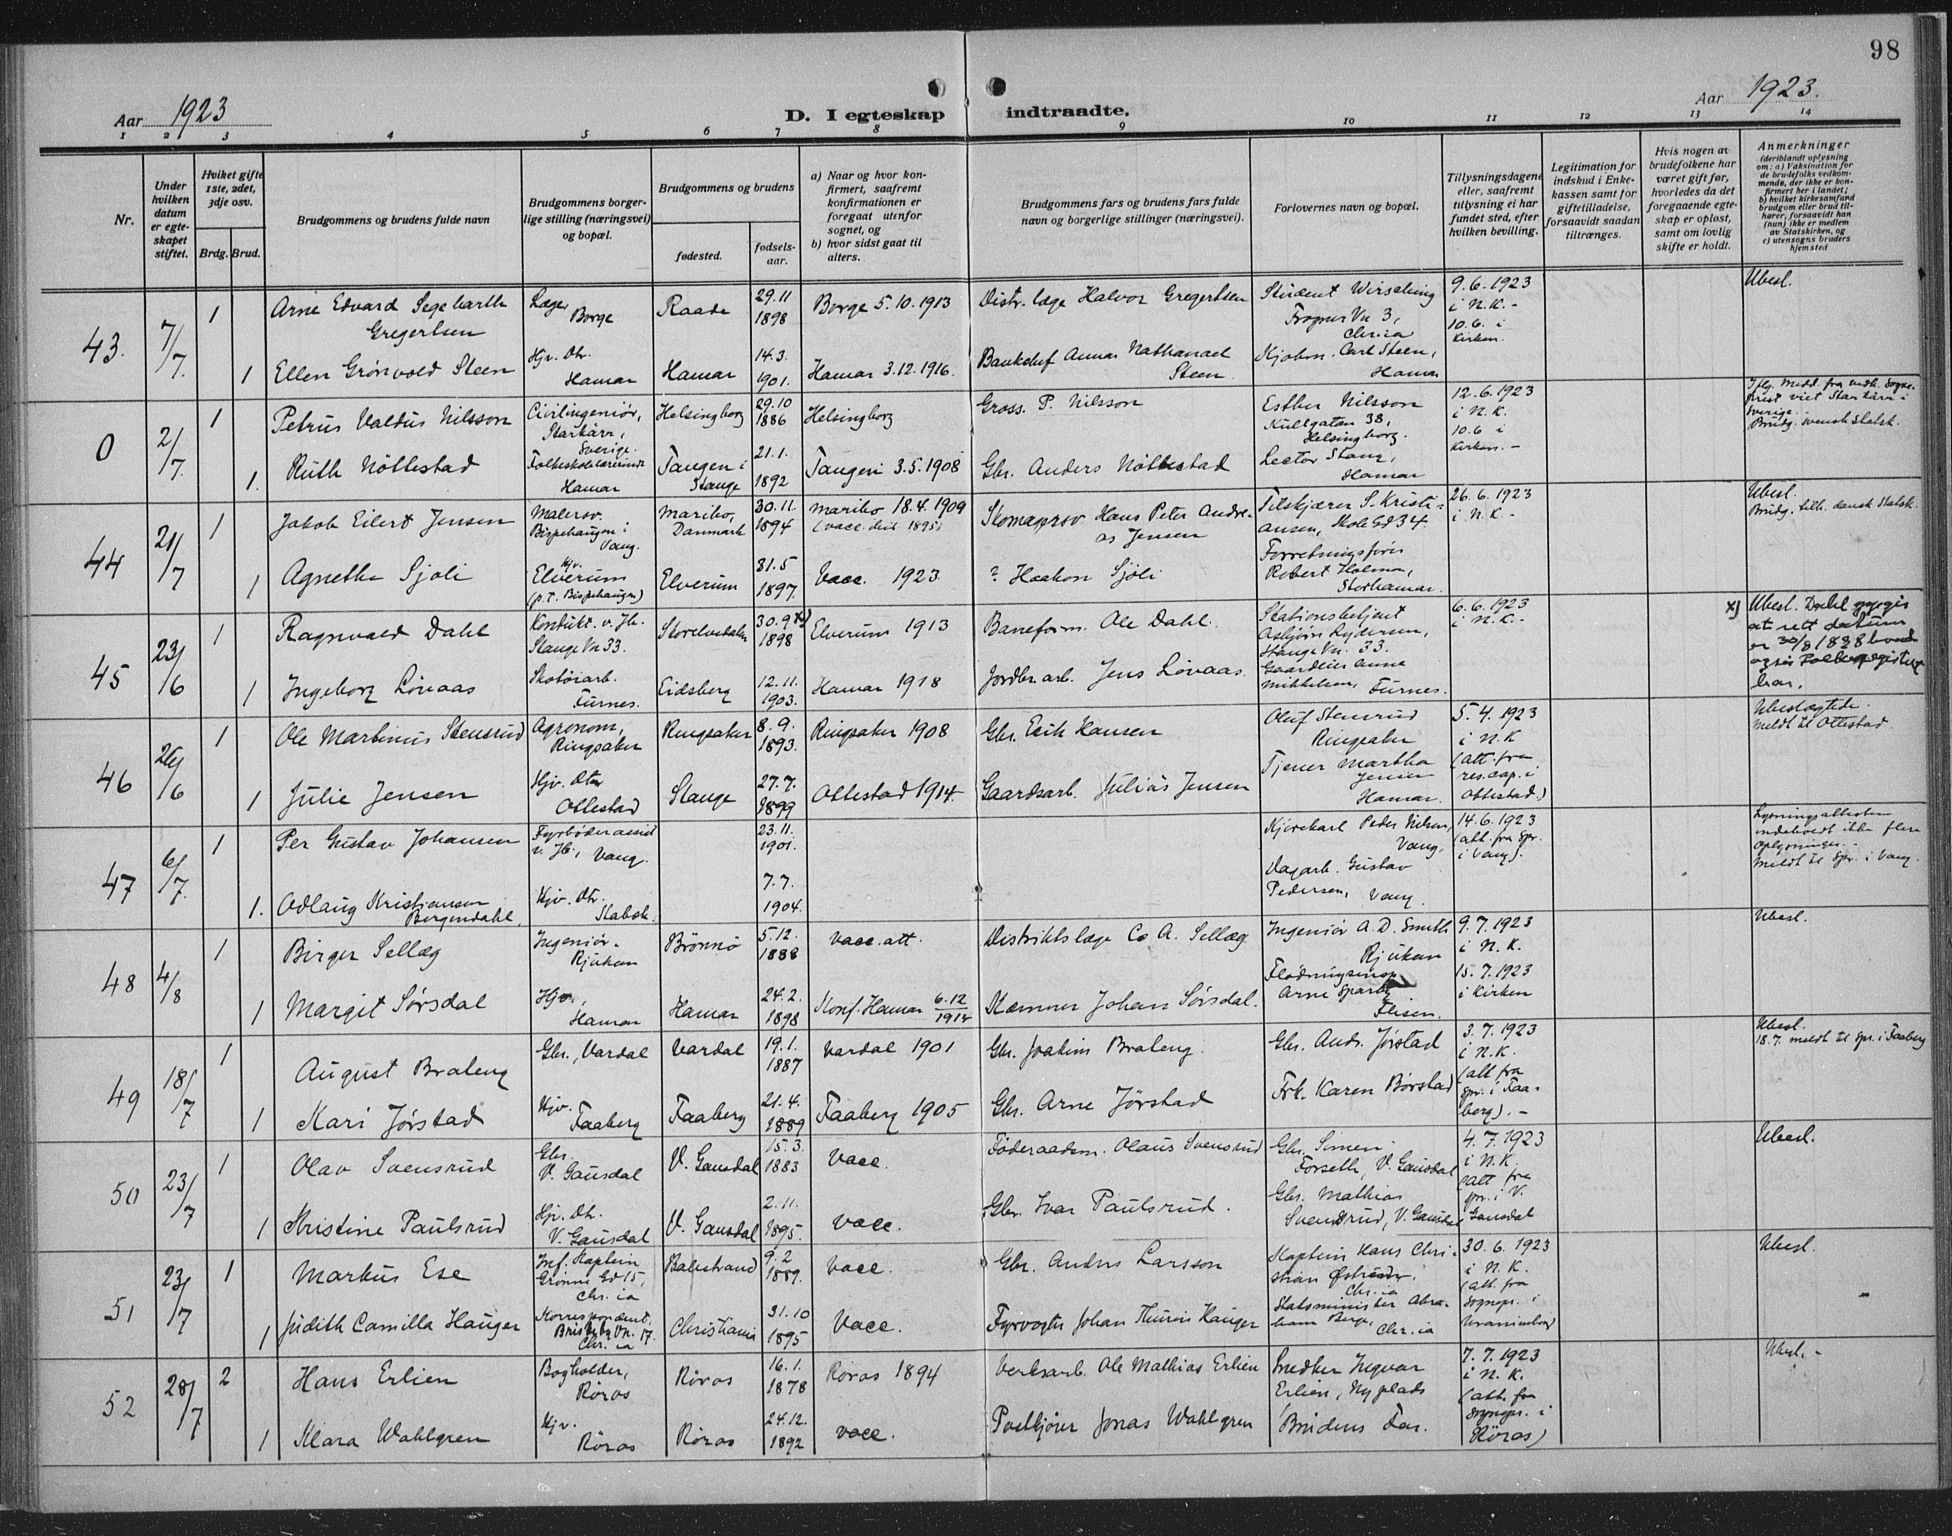 98
Aar 1923
D. I egteskap indtraadte.
Aar 1923.
1 2 3 4 5 6 7 8 9 10 11 12 13 14
Nr.
Under hvilken datum er egteskapet stiftet.
Hvilket gifte 1ste, 2det, 3dje osv.
Brdg. Brud.
Brudgommens og brudens fulde navn
Brudgommens borgerlige stilling (næringsvei) og bopæl.
Brudgommens og brudens
fødested.
fødselsaar.
a) Naar og hvor konfirmert, saafremt konfirmationen er foregaat utenfor sognet, og
b) hvor sidst gaat til alters.
Brudgommens fars og brudens fars fulde navn og borgerlige stillinger (næringsvei).
Forlovernes navn og bopæl.
Tillysningsdagene eller, saafremt tillysning ei har fundet sted, efter hvilken bevilling.
Legitimation for indskud i Enkekassen samt for giftetilladelse, forsaavidt saadan tiltrænges.
Hvis nogen av brudefolkene har været gift før, hvorledes da det foregaaende egteskap er opløst, samt om lovlig skifte er holdt.
Anmerkninger
(deriblandt oplysning om: a) Vaksination for de brudefolks vedkommende, der ikke er konfirmert her i landet; b) hvilket kirkesamfund brudgom eller brud tilhører, forsaavidt han (hun) ikke er medlem av Statskirken, og c) utensogns bruders hjemsted
43. 7/7. 1 Arne Edvard Segelcarth Gregertsen Læge, Borge Raade 29.11 1898 Borge 5.10.1913 Distr. læge Halvor Gregertsen Student Wirsching Frogner Vn 3, Chr.ia 9.6.1923 i N.K.- 10.6. i Kirken. Ubesl.
1 Ellen Grönvold Steen Hjv. Dtr. Hamar Hamar 14.3. 1901. Hamar 3.12.1916. Bankchef Annar Nathanael Steen Kjøbm. Carl Steen, Hamar
0 2/7. 1 Petrus Valdus Nilsson Civilingeniör, Starkärr, Sverige. Helsingborg 29.10 1886 Helsingborg Gross. P. Nilsson Esther Nilsson Kullgatan 38, Helsingborg. 12.6.1923 i N.K. 10.6 i Kirken.- Iflg. medd. fra vedk. Sogneprest viet Starkärr i Sverige. Brudg. svensk Statsk.
1. Ruth Nöttestad Folkeskolelærerinde Hamar Tangen i Stange 21.1. 1892 Tangen 3.5.1908 Gbr. Anders Nöttestad Lector Stang, Hamar
44 21/7 1 Jakob Eilert Jensen Malersv. Bispehaugen i Vang. Maribo, Danmark 30.11. 1894 Maribo 18.4.1909 (vacc. 1895) Skomagersv. Hans Peter Andreas Jensen S. Kristiansen, Skole Gd 34 26.6.1923 i N.K.- Ubesl. Brudg. tilh. dansk Statsk.
1 Agnethe Sjöli Hjv. Elverum (p.t. Bispehaugen) Elverum 31.5 1897. Vacc. 1923 ? Haakon Sjöli Forretningsfører Robert Holmen, Storhamar.
45 23/6 1 Ragnvald Dahl Kondukt. v. Jb. Stange Vn 33. Storelvedalen 30.9 x) 1898 Elverum 1913 Baneform. Ole Dahl. Stationsbetjent Asbjörn Rydersen, Stange Vn. 33. 6.6.1923 i N.K.- x) Ubesl. Dahl opgir at rett datum er 30/8 1898 hvad også Folkeregisteret har.
1 Ingeborg Lövaas Skotöiarb. Furnes. Eidsberg 12.11. 1903. Hamar 1918 Jordbr.arb. Jens Lövaas. Gaardeier Anne Mikkelsen, Furnes.
46 26/6 1 Ole Martinius Stensrud Agronom, Ringsaker Ringsaker 8.9. 1893. Ringsaker 1908 Gbr. Erik Hansen Oluf Stensrud Ringsaker 5.4.1923 i N.K (att. fra res.cap. i Ottestad.) Ubeslægtede. meldt til Ottestad
1 Julie Jensen Hjv. Dtr Ottestad Stange 27.7. 1899 Ottestad 1914. Gaardsarb. Julius Jensen Tjener Martha Jensen Hamar.
47 6/7. 1 Per Gustav Johansen Fyrböderassist v. Jb., Vang. 23.11. 1901. Kjørekarl Peder Nilsen, Vang. 14.6.1923 (att. fra Spr. i Vang). Lysningsattesten indeholdt ikke flere Oplysninger.- Meldt til Spr. i Vang.
1. Odlaug Kristiansen Bergendahl. Hjv. Dtr. Stabek. 7.7. 1904. Dagarb. Gustav Pedersen, Vang.
48 4/8 1 Birger Sellæg Ingeniör. Rjukan Brönnö 5.12. 1888 Vacc. att. Distriktslæge Co A. Sellæg Ingeniör A.D. Smith Rjukan 9.7.1923 i N.K. 15.7.1923 i Kirken Ubesl.
1 Margit Sörsdal Hjv., Hamar Hamar 24.2. 1898 Konf. Hamar 6.12 1912 Kæmner Johan Sörsdal. Flödningsinsp Arne Sparby Flisen.
49 18/7 1 August Braleng Gbr., Vardal Vardal 19.1. 1887 Vardal 1901 Gbr. Joakim Braleng. Gbr. Andr. Jörstad 3.7.1923 i N.K. (att fra Spr. i Faaberg).- Ubesl. 18.7. meldt til Spr. i Faaberg
1 Kari Jörstad Hjv. Faaberg Faaberg 21.4. 1889 Faaberg 1905 Gbr. Arne Jörstad Frk. Karen Börstad
50 23/7 1 Olav Svensrud Gbr. V. Gausdal V. Gausdal 15.3. 1883 Vacc. Föderaadsm. Olaus Svensrud Gbr. Simen Forseth, V. Gausdal 4.7.1923 i N.K. (att fra Spr. i V. Gausdal Ubesl.
1 Kristine Paulsrud Hjv. Dtr. V. Gausdal V. Gausdal 2.11. 1895. Vacc. Gbr. Ivar Paulsrud. Gbr. Mathias Svendsrud, V. Gausdal
51 23/7 1 Markus Ese Inf. Kaptein Grönne Gd 15, Chr.ia Balestrand 9.2 1889. Vacc. Gbr. Anders Larsson Kaptein Hans Christian Chr.ia 30.6.1923 i N.K. (att. fra Sognepr. i Uranienborg Ubesl.
1 Judith Camilla Hauger Korrespondent. Briskeby Vn. 17. Chr.ia Christiania 31.10 1895 Vacc. Fyrvogter Johan Hauger Statsminister Abraham Berge, Chr.ia
52 28/7 2 Hans Erlien Bogholder, Röros Röros 16.1. 1878 Röros 1894 Verksarb. Ole Mathias Erlien Snedker Ingvar Erlien, Nyplads 7.7.1923 i N.K. (att. fra Sognepr. i Röros) Ubesl.-
1 Klara Wahlgren Hjv. Röros Röros 24.12. 1892 vacc. Postkjörer Jonas Wahlgren Brudens Far.